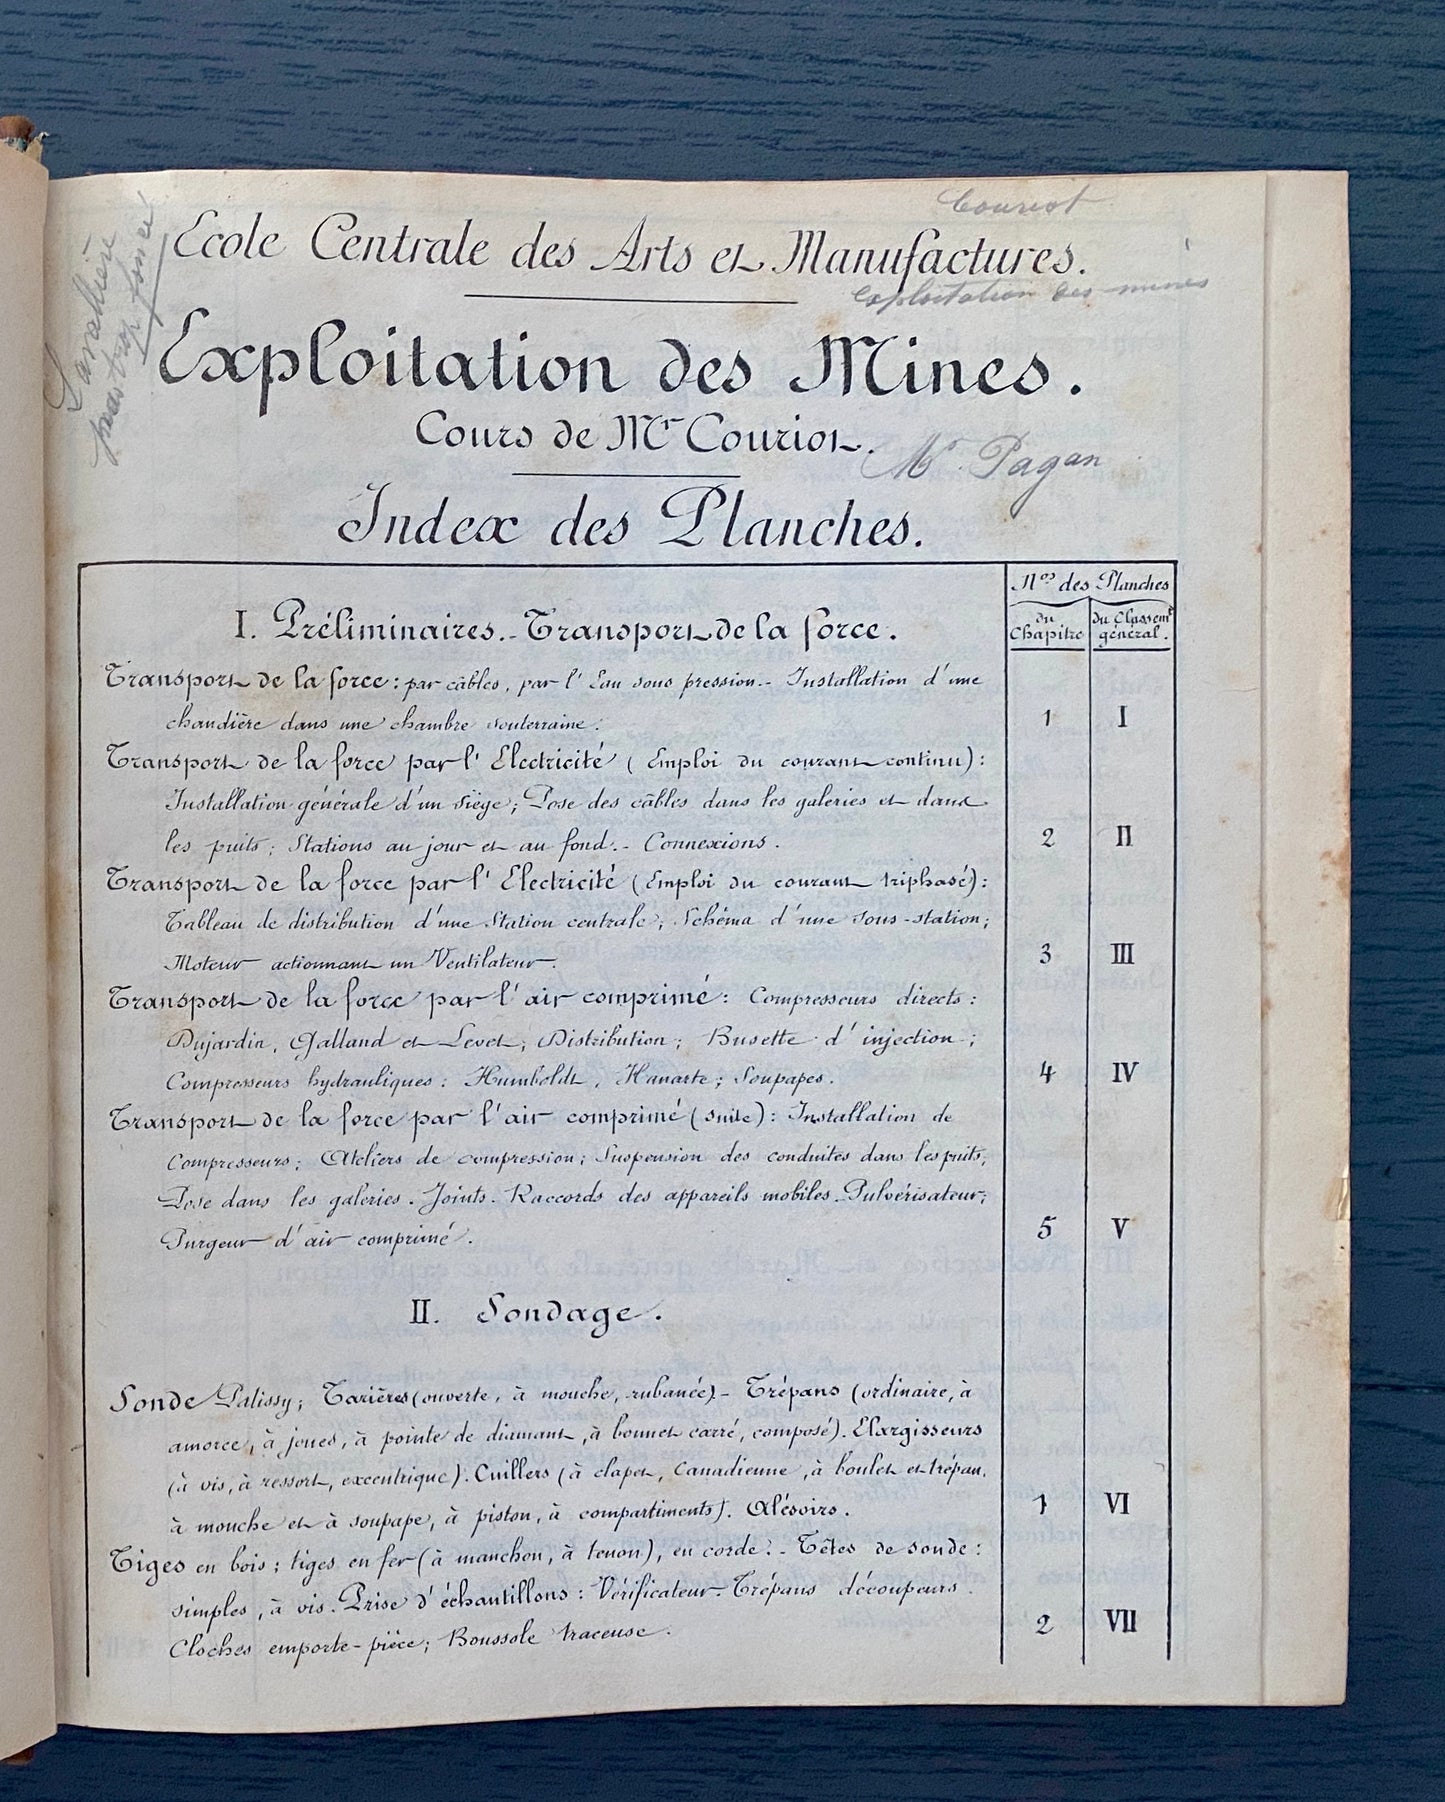 Couriot
Ecole Centrale des Arts et Manufactures.
Exploitation des mines
Lavallière
pas trop foncé
Exploitation des Mines.
Cours de Mr Couriot.
Mr. Pagan
Index des Planches.
Nos des Planches
du Chapitre
du Classemt général.
I. Préliminaires._Transport de la force.
Transport de la force: par câbles, par l'Eau sous pression._ Installation d'une
chaudière dans une chambre souterraine. 1 I
Transport de la force par l'Electricité (Emploi du courant continu):
Installation générale d'un siège; Pose des câbles dans les galeries et dans
les puits; Stations au jour et au fond._ Connexions. 2 II
Transport de la force par l'Electricité (Emploi du courant triphasé):
Tableau de distribution d'une Station centrale; Schéma d'une sous-station;
Moteur actionnant un Ventilateur. 3 III
Transport de la force par l'air comprimé: Compresseurs directs:
Dujardin, Galland et Levet; Distribution; Busette d'injection;
Compresseurs hydrauliques: Humboldt, Hanarte; Soupapes. 4 IV
Transport de la force par l'air comprimé (suite): Installation de
Compresseurs; Ateliers de compression; Suspension des conduites dans les puits;
Pose dans les galeries. Joints. Raccords des appareils mobiles. Pulvérisateur;
Purgeur d'air comprimé. 5 V
II. Sondage.
Sonde Palissy; Tarières (ouverte, à mouche, rubanée)_ Trépans (ordinaire, à
amorce, à joues, à pointe de diamant, à bonnet carré, composé). Elargisseurs
(à vis, à ressort, excentrique). Cuillers (à clapet, Canadienne, à boulet et trépan,
à mouche et à soupape, à piston, à compartiments). Alésoirs. 1 VI
Tiges en bois; tiges en fer (à manchon, à tenon), en corde._ Têtes de sonde:
simples, à vis. Prise d'échantillons: Vérificateur. Trépans découpeurs.
Cloches emporte-pièce; Boussole traceuse. 2 VII